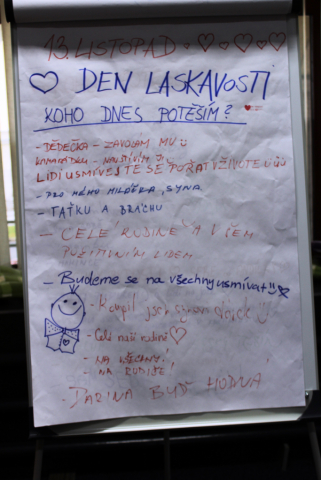 13. LISTOPAD
DEN LASKAVOSTI
KOHO DNES POTĚŠÍM?
- DĚDEČKA - ZAVOLÁM MU
KAMARÁDKU - NAVŠTÍVÍM JI
LIDI USMÍVEJTE SE POŘÁT V ŽIVOTĚ
- PRO MÉHO MILÁČKA, SYNA
- TAŤKU A BRÁCHU
- CELÉ RODINĚ A VŠEM
POZITIVNÍM LIDEM
- Budeme se na všechny usmívat!!
- Koupil jsem
- Celé naší rodině
- NA VŠECHNY!!
- NA RODIČE!
- DARINA BUĎ HODNÁ